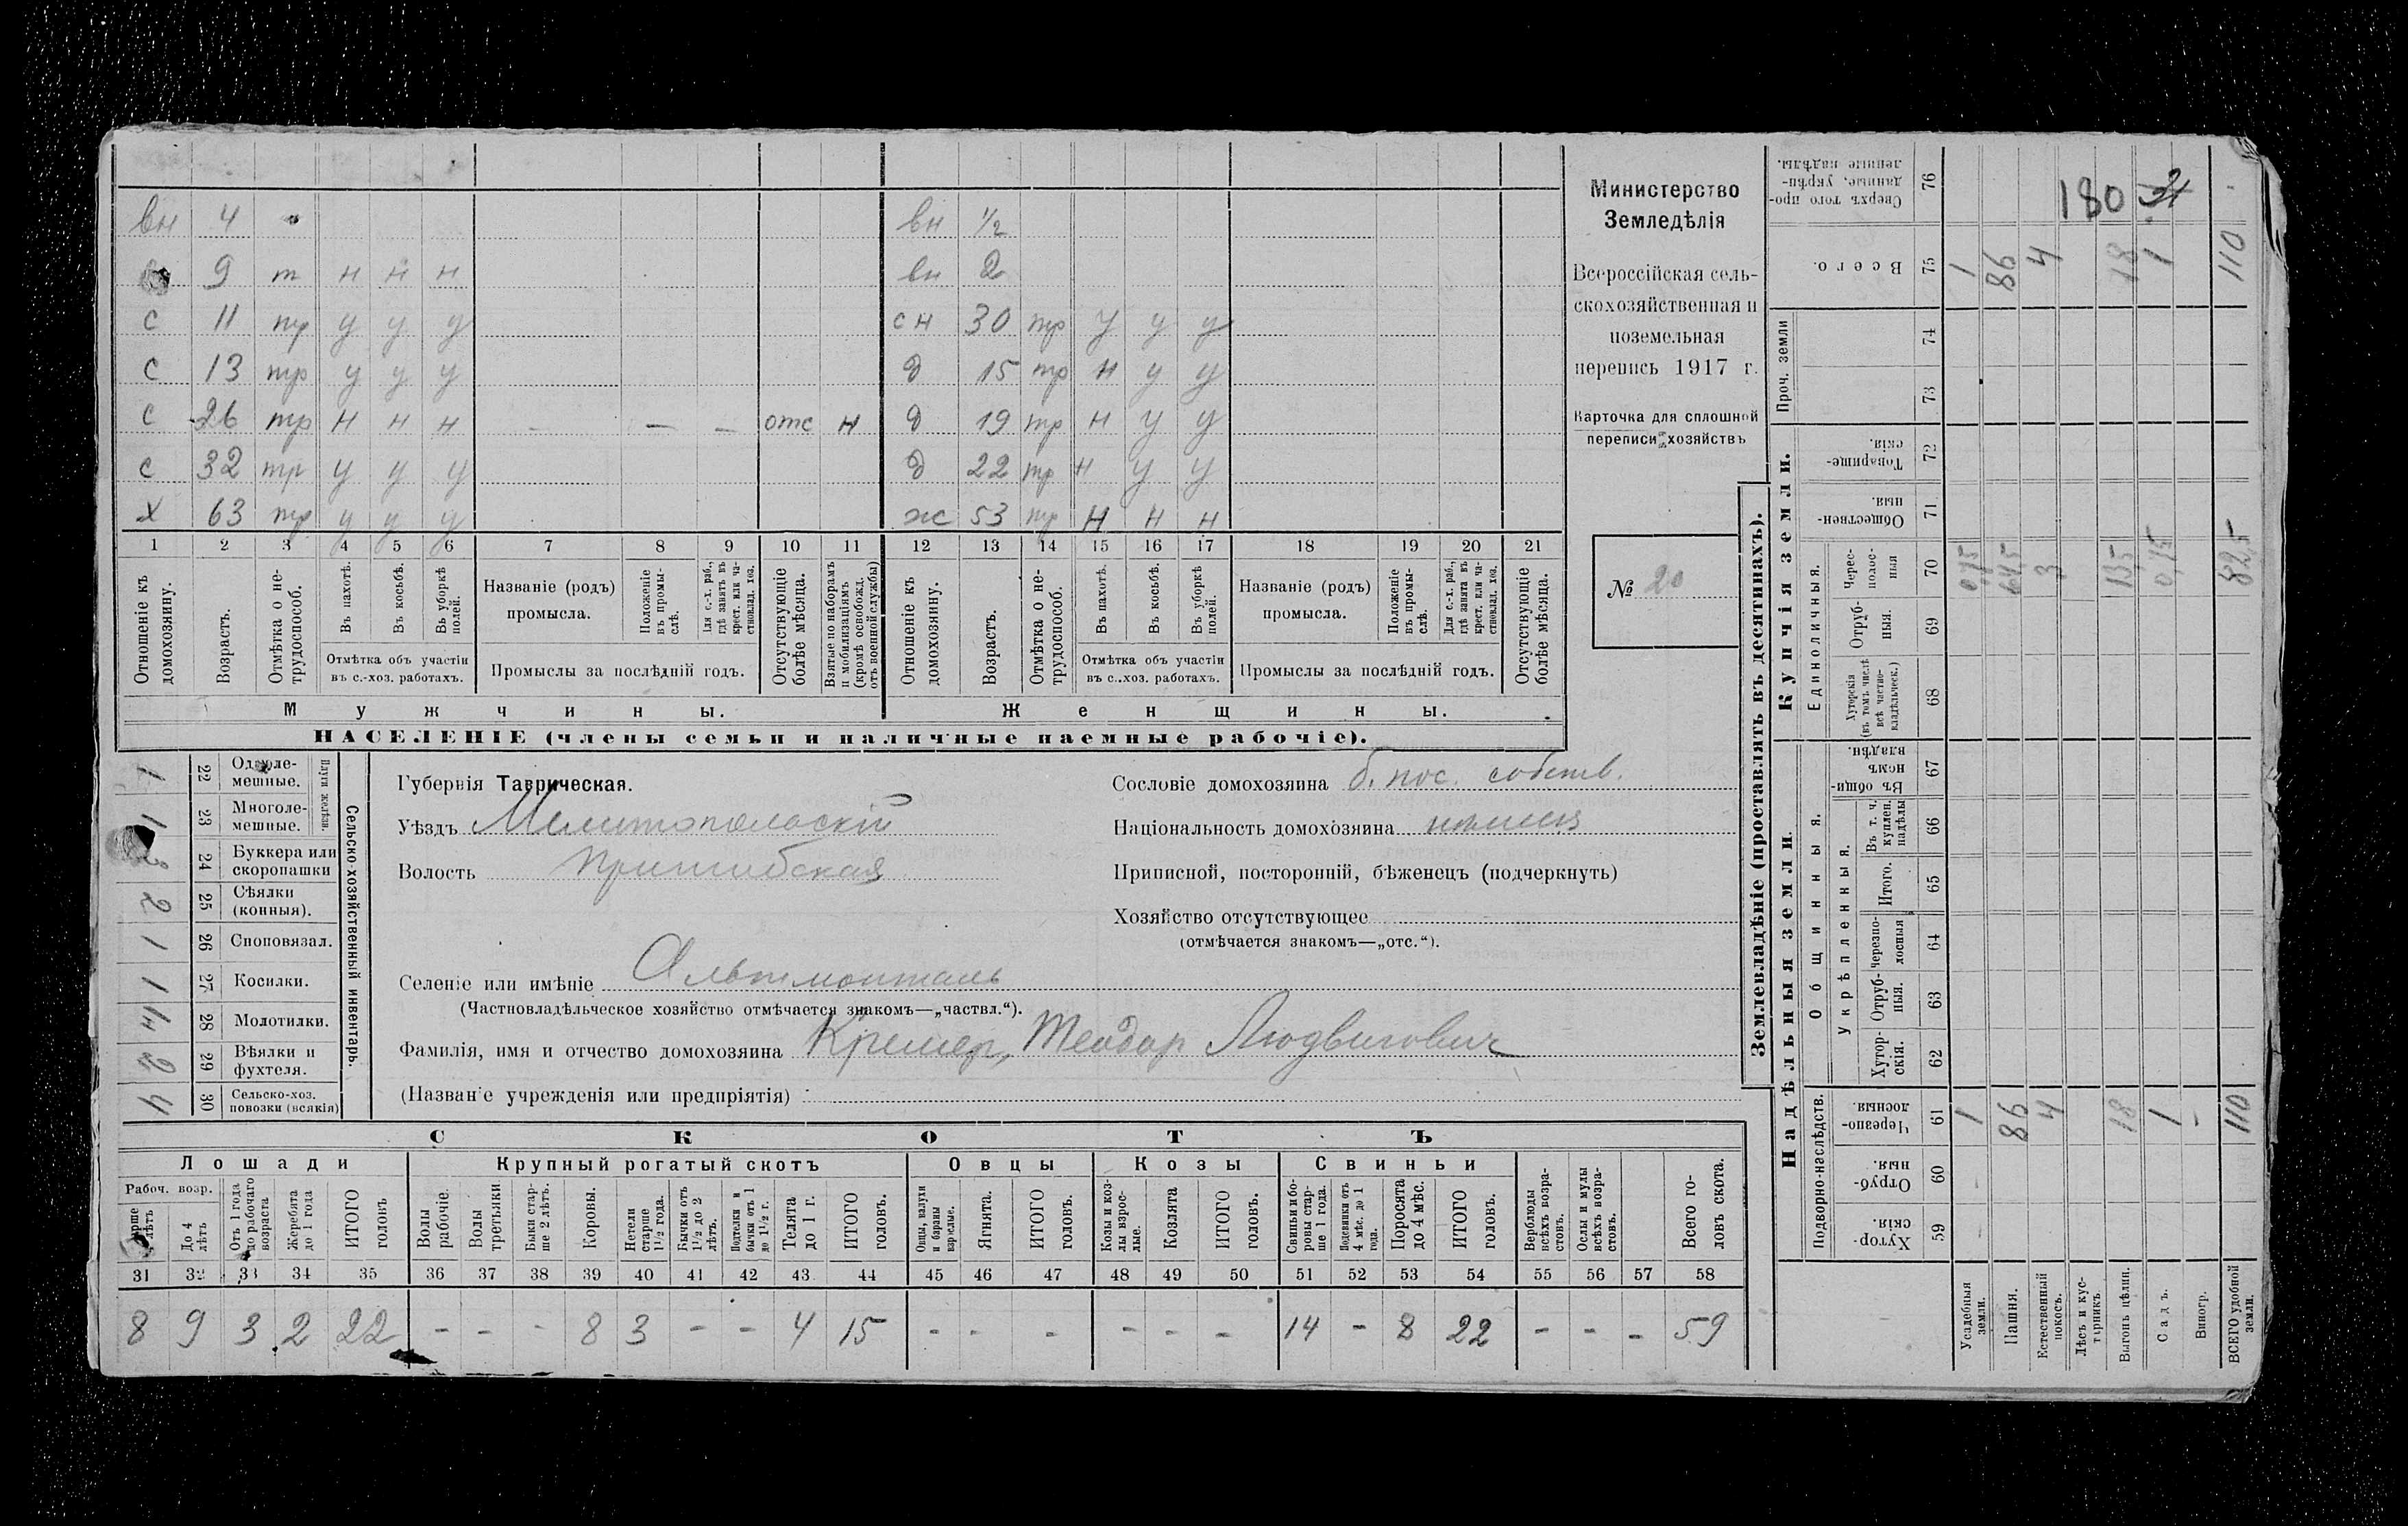 вн 4 вн ½
9 т н н н вн 2
с 11 тр у у у сн 30 тр у у у
с 13 тр у у у д 15 тр н у у
с 26 тр н н н — — — отс н д 19 тр н у у
с 32 тр у у у д 22 тр н у у
х 63 тр у у у ж 53 тр н н н
1 2 3 4 5 6 7 8 9 10 11 12 13 14 15 16 17 18 19 20 21
Отношеніе къ домохозяину.
Возрастъ.
Отмѣтка о не-трудоспособ.
Въ пахотѣ.
Въ косьбѣ.
Въ уборкѣ полей.
Отмѣтка объ участіи
въ с.-хоз. работахъ.
Названіе (родъ)
промысла.
Положеніе въ промы-слѣ.
Для с.-х. раб., гдѣ занятъ въ крест. или ча-стновлад. хоз.
Промыслы за послѣдній годъ.
Отсутствующіе болѣе мѣсяца.
Взятые по наборамъ и мобилизаціямъ (кромѣ освобожд. отъ военной службы)
Отношеніе къ домохозяину.
Возрастъ.
Отмѣтка о не-трудоспособ.
Въ пахотѣ.
Въ косьбѣ.
Въ уборкѣ полей.
Отмѣтка объ участіи
въ с.-хоз. работахъ.
Названіе (родъ)
промысла.
Положеніе въ промы-слѣ.
Для с.-х. раб., гдѣ занята въ крест. или ча-стновлад. хоз.
Промыслы за послѣдній годъ.
Отсутствующіе болѣе мѣсяца.
Мужчины. Женщины.
НАСЕЛЕНІЕ (члены семьи и наличные наемные рабочіе).
Министерство
Земледѣлія
Всероссійская сель-
скохозяйственная и
поземельная
перепись 1917 г.
Карточка для сплошной
переписи хозяйствъ
№ 20
Сельско-хозяйственный инвентарь.
Плуги желѣзн.
1 22 Одноле-мешные.
1 23 Многоле-мешные.
3 24 Буккера или скоропашки
2 25 Сѣялки (конныя).
1 26 Сноповязал.
1 27 Косилки.
28 Молотилки.
2 29 Вѣялки и фухтеля.
4 30 Сельско-хоз. повозки (всякія)
Губернія Таврическая.
Уѣздъ Мелитопольскій
Волость Пришибская
Сословіе домохозяина б. пос. собств.
Національность домохозяина нѣмецъ
Приписной, посторонній, бѣженецъ (подчеркнуть)
Хозяйство отсутствующее
(отмѣчается знакомъ—„отс.“).
Селеніе или имѣніе Альтмонталь
(Частновладѣльческое хозяйство отмѣчается знакомъ—„частвл.“).
Фамилія, имя и отчество домохозяина Кремер, Теодор Людвигович
(Названіе учрежденія или предпріятія)
СКОТЪ
Лошади Крупный рогатый скотъ Овцы Козы Свиньи
Рабоч. возр.
Старше 4 лѣтъ
До 4 лѣтъ
Отъ 1 года до рабочаго возраста
Жеребята до 1 года
ИТОГО головъ
Волы рабочіе.
Волы третьяки
Быки стар-ше 2 лѣтъ.
Коровы.
Нетели старше 1½ года.
Бычки отъ 1½ до 2 лѣтъ.
Подтелки и бычки отъ 1 до 1½ г.
Телята до 1 г.
ИТОГО головъ.
Овцы, валухи и бараны взрослые.
Ягнята.
ИТОГО головъ.
Козы и коз-лы взрос-лые.
Козлята
ИТОГО головъ.
Свиньи и бо-ровы стар-ше 1 года.
Подсвинки отъ 4 мѣс. до 1 года.
Поросята до 4 мѣс.
ИТОГО головъ.
Верблюды всѣхъ возра-стовъ.
Ослы и мулы всѣхъ возра-стовъ.
Всего го-ловъ скота.
31 32 33 34 35 36 37 38 39 40 41 42 43 44 45 46 47 48 49 50 51 52 53 54 55 56 57 58
8 9 3 2 22 - - - 8 3 - - 4 15 - - - - - - 14 - 8 22 - - - 59
Землевладѣніе (проставлять въ десятинахъ).
Надѣльныя земли. Купчія земли.
Подворно-наслѣдств. Общинныя. Единоличныя. Проч. земли
Укрѣпленныя.
Хутор-скія. 59
Отруб-ныя. 60
Черезпо-лосныя. 61
Хутор-скія. 62
Отруб-ныя. 63
Черезпо-лосныя 64
Итого. 65
Въ т. ч. куплен. надѣлы 66
Въ общин-номъ владѣн. 67
Хуторскія (въ томъ числѣ всѣ частно-владѣльческ.) 68
Отруб-ныя. 69
Черес-полос-ныя 70
Обществен-ныя. 71
Товарище-скія. 72
73
74
Всего. 75
Сверхъ того про-данные, укрѣп-ленные надѣлы. 76
Усадебныя земли. 1 0,75 1
Пашня. 86 64,5 86
Естественный покосъ. 4 3 4
Лѣсъ и кус-тарникъ.
Выгонъ цѣлин. 18 13,5 18
Садъ. 1 0,75 1
Виногр. -
ВСЕГО удобной земли. 110 82,5 110
180